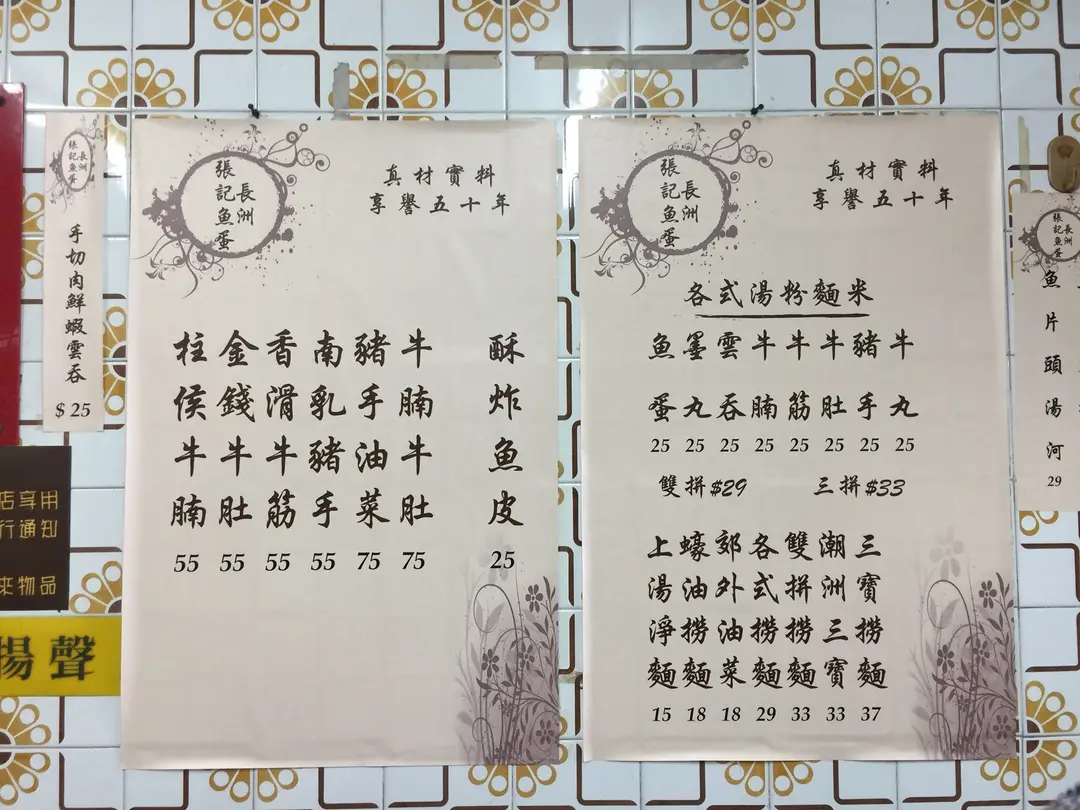 長洲
張記魚蛋
手切肉鮮蝦雲吞
$25
店享用
行通知
來物品
揚聲
長洲
張記魚蛋
真材實料
享譽五十年
酥炸魚皮
25
牛腩牛肚
75
豬手油菜
75
南乳豬手
55
香滑牛筋
55
金錢牛肚
55
柱侯牛腩
55
長洲
張記魚蛋
真材實料
享譽五十年
各式湯粉麵米
牛丸
25
豬手
25
牛肚
25
牛筋
25
牛腩
25
雲吞
25
墨丸
25
魚蛋
25
雙拼$29
三拼$33
三寶撈麵
37
潮洲三寶
33
雙拼撈麵
33
各式撈麵
29
郊外油菜
18
蠔油撈麵
18
上湯淨麵
15
長洲
張記魚蛋
魚片頭湯河
29